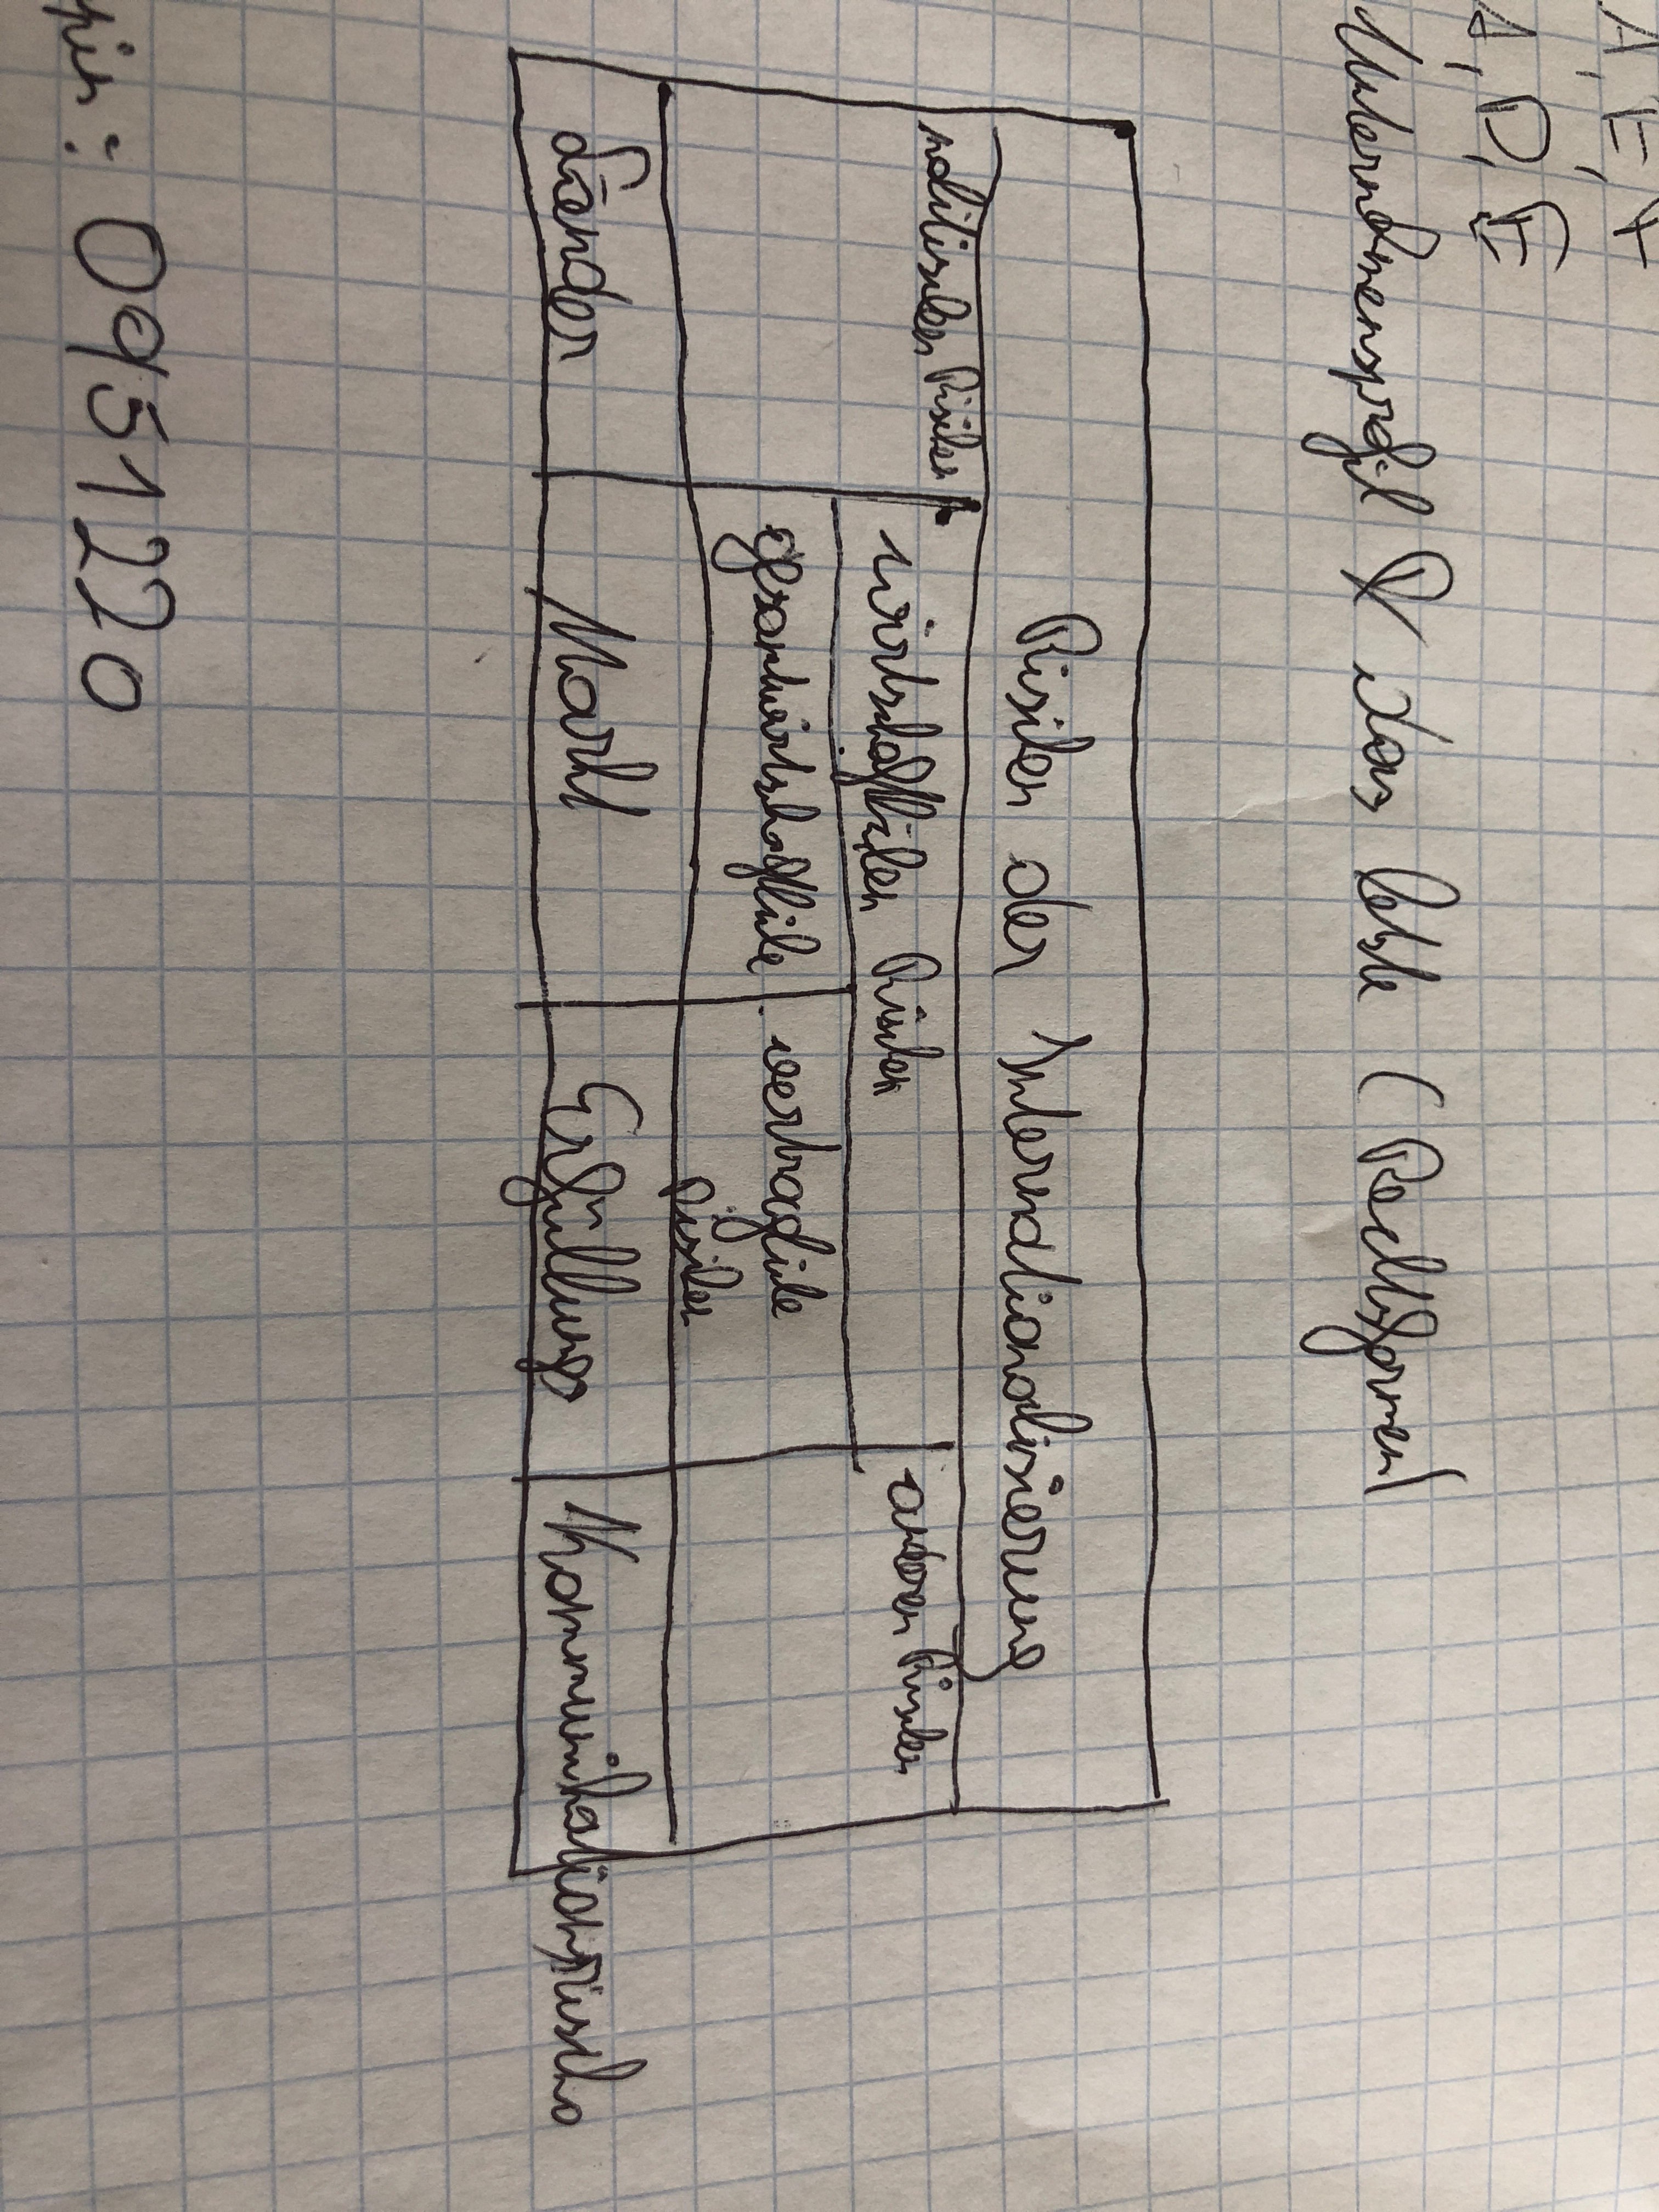 A, E, F
A, D, E
Unternehmensprofil & das letzte (Rechtsformen)
Risiken der Internationalisierung
politischen Risiken
wirtschaftlichen Risiken
anderen Risiken
gesamtwirtschaftliche
vertragliche
Risiken
Länder
Markt
Erfüllungs
Kommunikationsrisiko
pin: 0951220